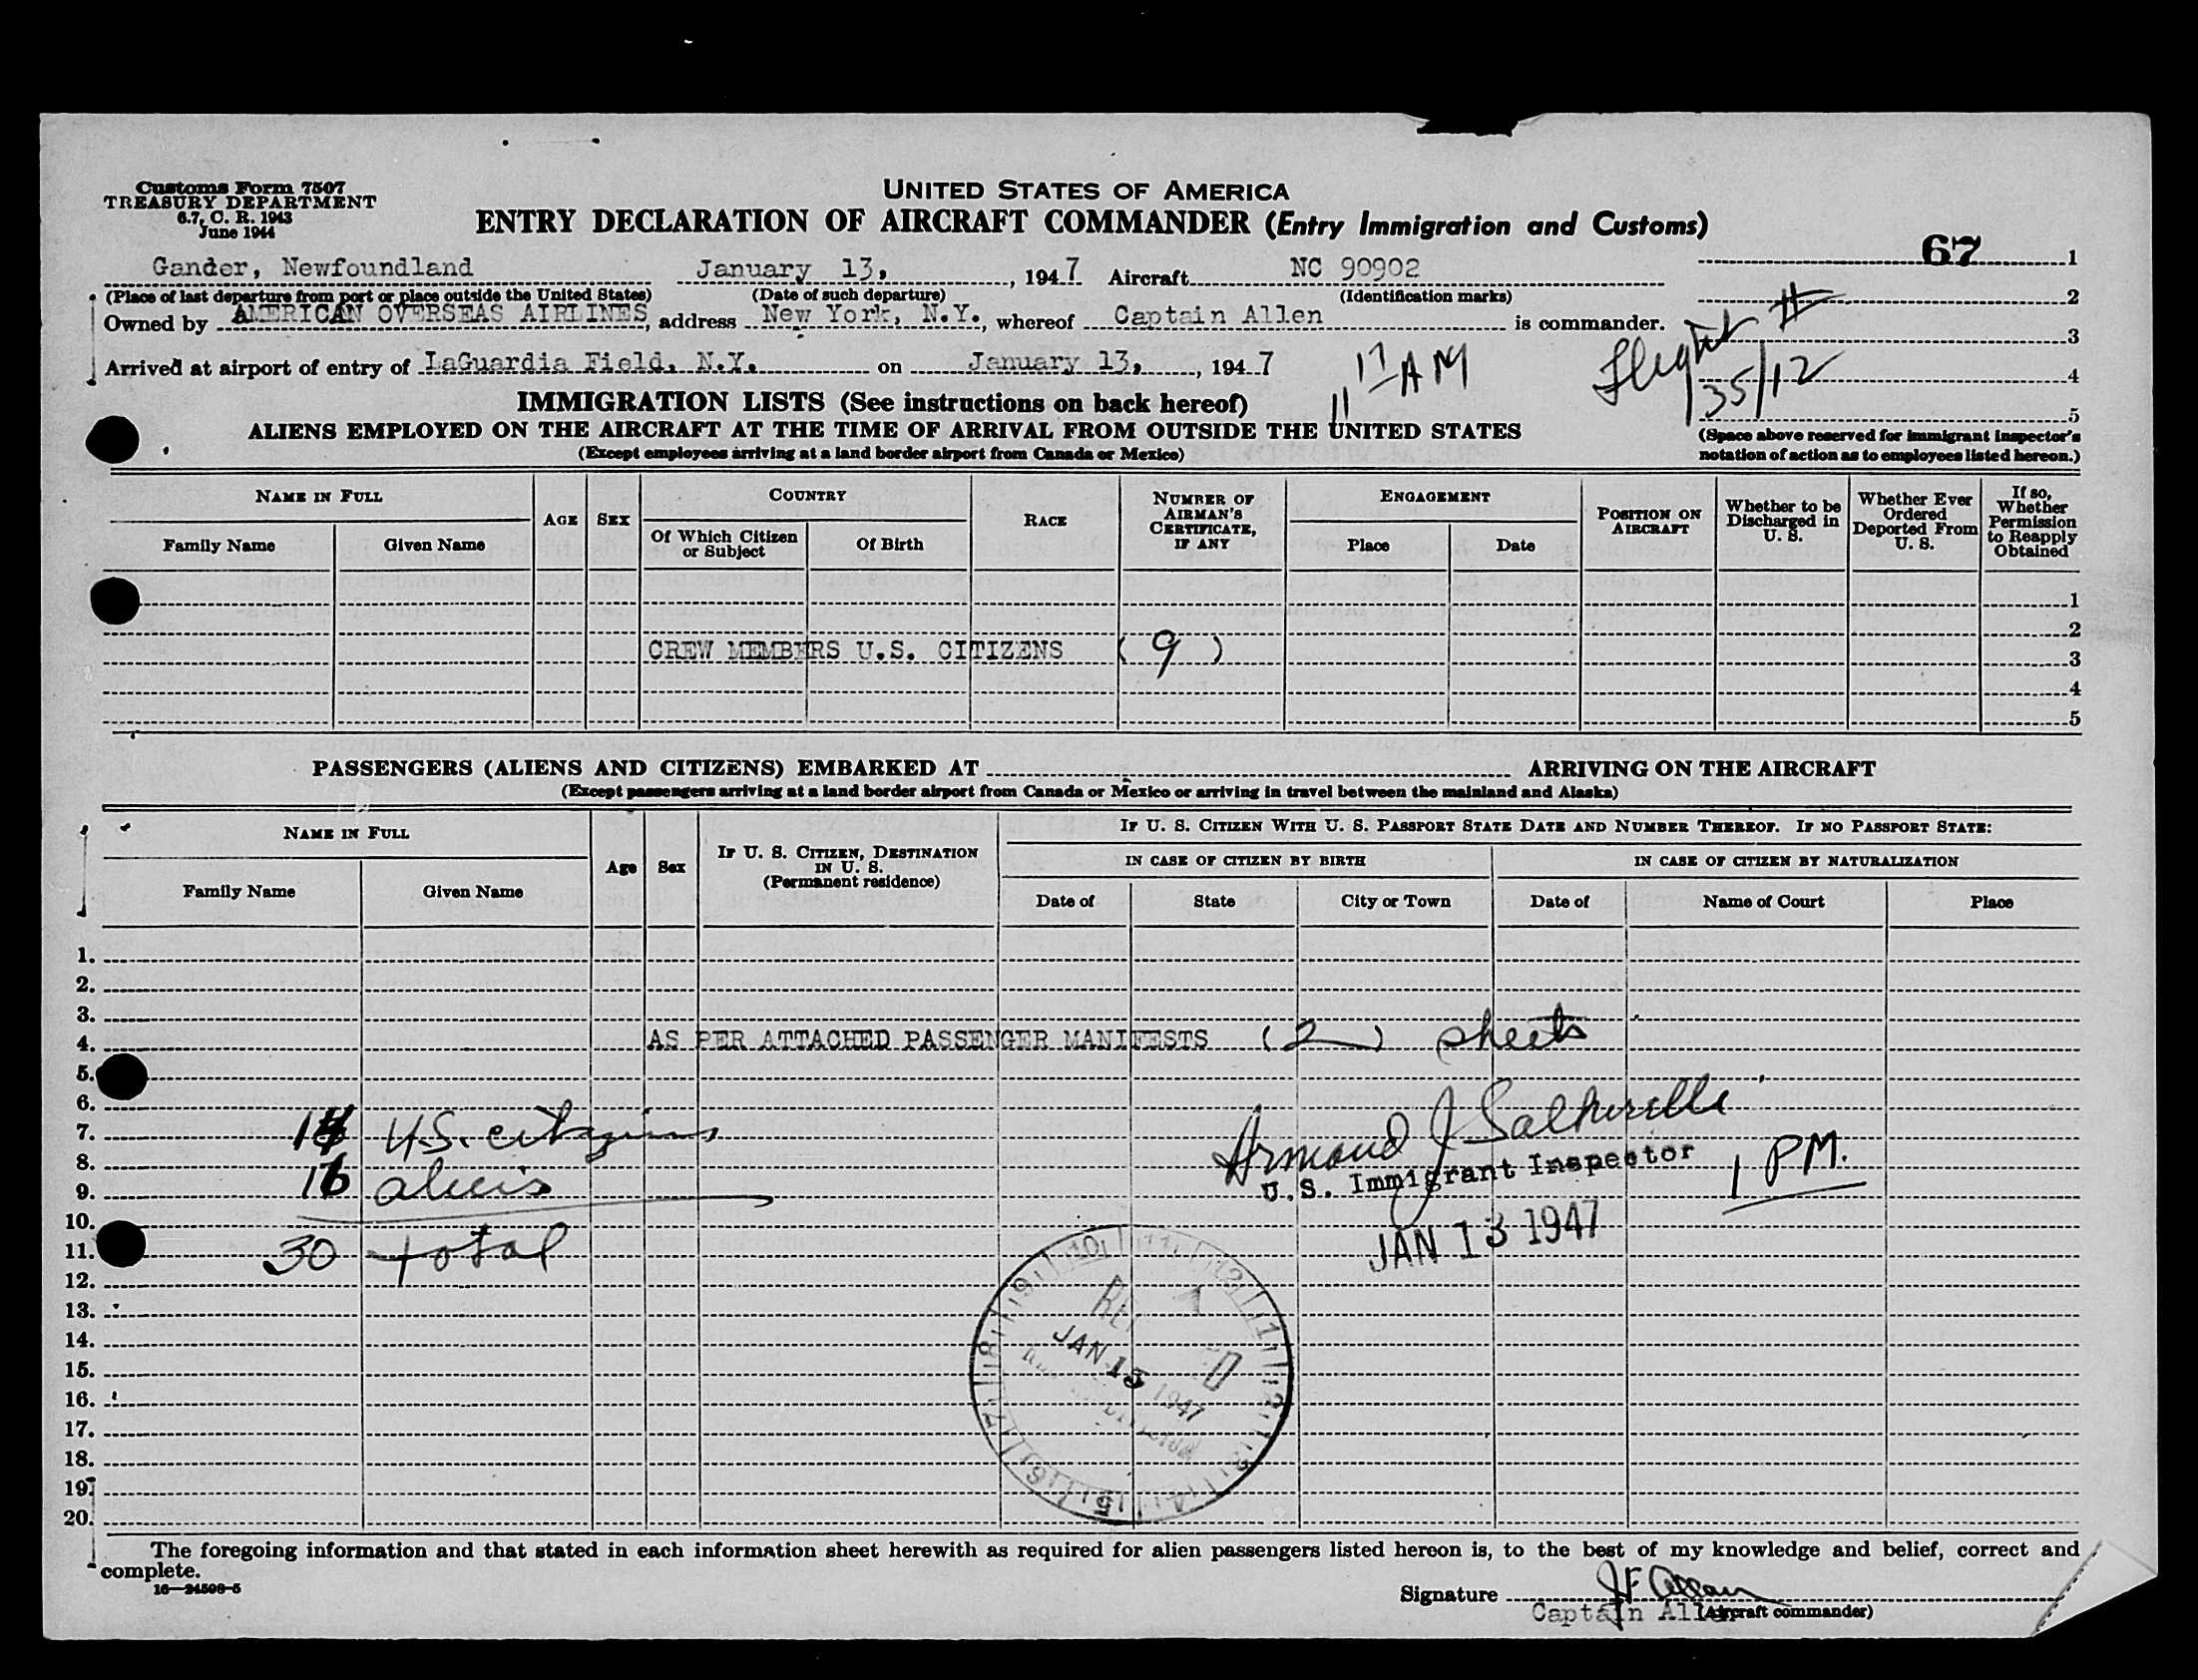 Customs Form 7507
TREASURY DEPARTMENT
6.7, C. R. 1943
June 1944
UNITED STATES OF AMERICA
ENTRY DECLARATION OF AIRCRAFT COMMANDER (Entry Immigration and Customs)
67
Gander, Newfoundland January 13, , 1947 Aircraft NC 90902 1
(Place of last departure from port or place outside the United States) (Date of such departure) (Identification marks) 2
Owned by AMERICAN OVERSEAS AIRLINES, address New York, N.Y., whereof Captain Allen is commander.
Flight # 3
Arrived at airport of entry of LaGuardia Field, N.Y. on January 13, , 1947 11 17 AM
35/12 4
5
IMMIGRATION LISTS (See instructions on back hereof)
ALIENS EMPLOYED ON THE AIRCRAFT AT THE TIME OF ARRIVAL FROM OUTSIDE THE UNITED STATES
(Except employees arriving at a land border airport from Canada or Mexico)
(Space above reserved for immigrant inspector's
notation of action as to employees listed hereon.)
NAME IN FULL
Family Name Given Name
AGE SEX
COUNTRY
Of Which Citizen or Subject Of Birth
RACE
NUMBER OF AIRMAN'S CERTIFICATE, IF ANY
ENGAGEMENT
Place Date
POSITION ON AIRCRAFT
Whether to be Discharged in U. S.
Whether Ever Ordered Deported From U. S.
If so, Whether Permission to Reapply Obtained
1
2
CREW MEMBERS U.S. CITIZENS ( 9 ) 3
4
5
PASSENGERS (ALIENS AND CITIZENS) EMBARKED AT ARRIVING ON THE AIRCRAFT
(Except passengers arriving at a land border airport from Canada or Mexico or arriving in travel between the mainland and Alaska)
NAME IN FULL
Family Name Given Name
Age Sex
IF U. S. CITIZEN, DESTINATION IN U. S.
(Permanent residence)
IF U. S. CITIZEN WITH U. S. PASSPORT STATE DATE AND NUMBER THEREOF. IF NO PASSPORT STATE:
IN CASE OF CITIZEN BY BIRTH IN CASE OF CITIZEN BY NATURALIZATION
Date of State City or Town Date of Name of Court Place
1.
2.
3.
4. AS PER ATTACHED PASSENGER MANIFESTS (2) sheets
5.
6.
7. 14 U.S. citizens Armand J
8. U.S. Immigrant Inspector 1 PM.
9. 16 aliens
10. JAN 13 1947
11. 30 total
12.
13.
14.
15. JAN 15 1947
16.
17.
18.
19.
20.
The foregoing information and that stated in each information sheet herewith as required for alien passengers listed hereon is, to the best of my knowledge and belief, correct and
complete.
16—24508-5
Signature JF Allen
Captain Allen (Aircraft commander)